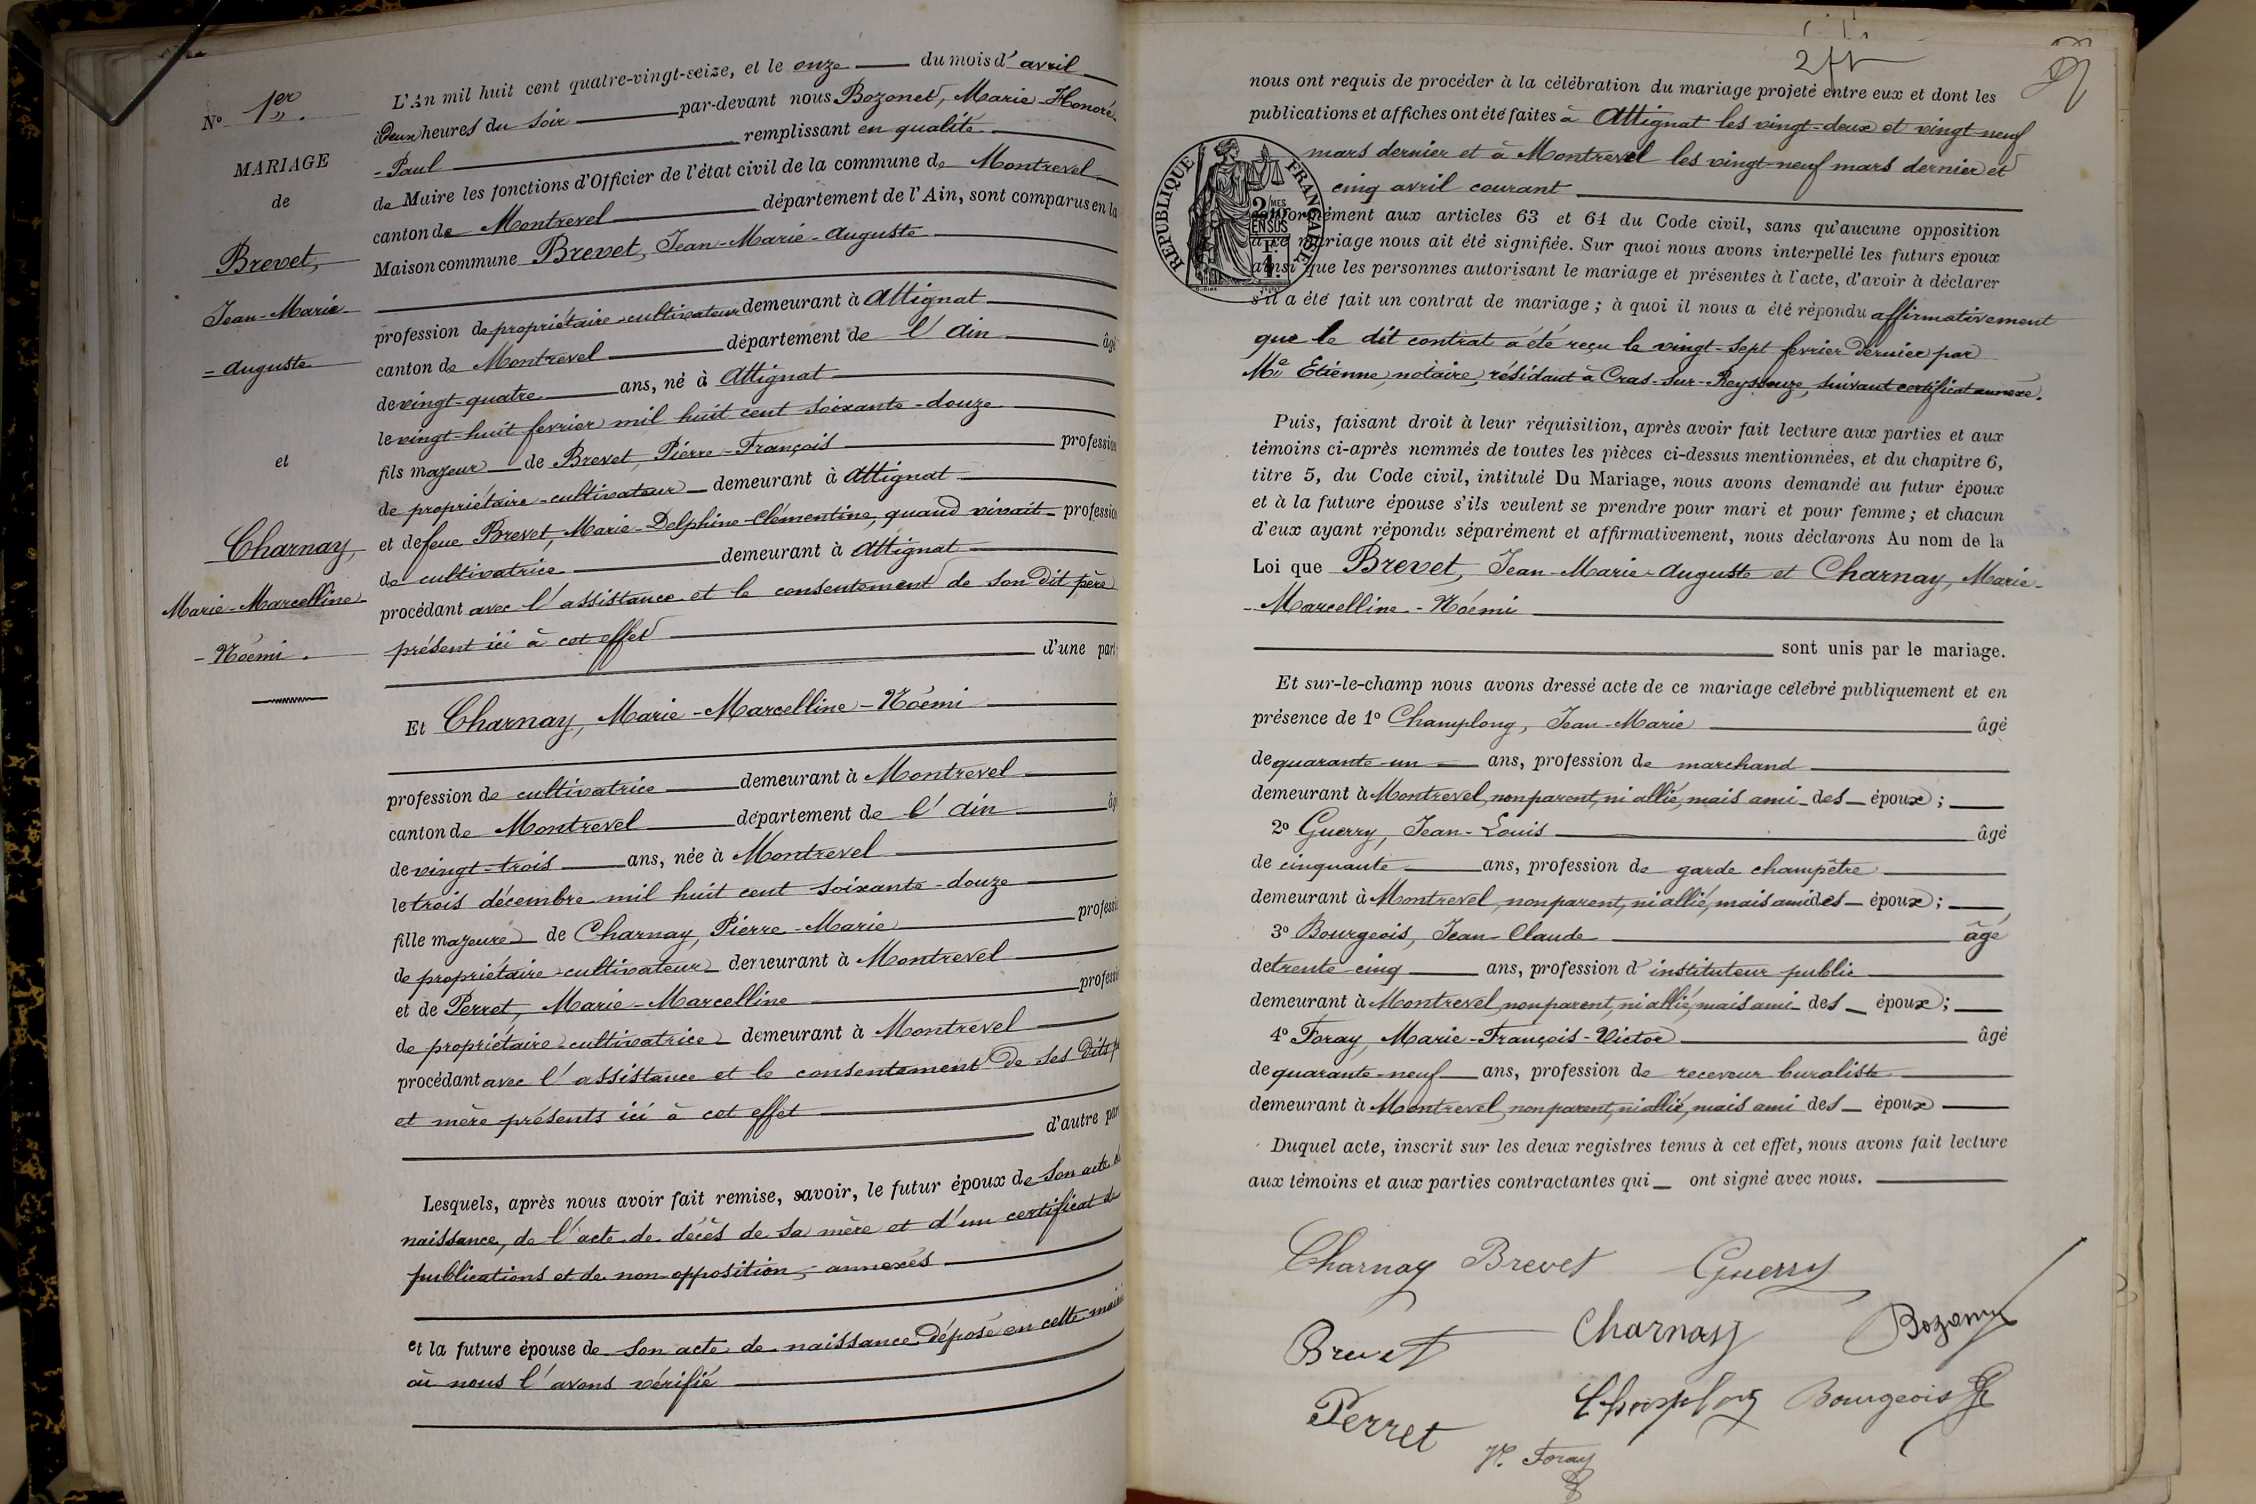 N° 1er.
MARIAGE
de
Brevet,
Jean-Marie-
=Auguste
et
Charnay,
Marie-Marcelline
-Noémi.
L'An mil huit cent quatre-vingt-seize, et le onze du mois d'avril
à Deux heures du soir par-devant nous Bozonet, Marie-Honoré-
-Paul remplissant en qualité
de Maire les fonctions d'Officier de l'état civil de la commune de Montrevel
canton de Montrevel département de l'Ain, sont comparus en la
Maison commune Brevet, Jean-Marie-Auguste
profession de propriétaire-cultivateur demeurant à Attignat
canton de Montrevel département de l'Ain âgé
de vingt-quatre ans, né à Attignat
le vingt-huit fevrier mil huit cent soixante-douze
fils majeur de Brevet, Pierre-François profession
de propriétaire-cultivateur demeurant à Attignat
et de feue Brevet, Marie-Delphine-Clémentine, quand vivait profession
de cultivatrice demeurant à Attignat
procédant avec l'assistance et le consentement de son dit père
présent ici à cet effet
d'une part
Et Charnay, Marie-Marcelline-Noémi
profession de cultivatrice demeurant à Montrevel
canton de Montrevel département de l'Ain âgé
de vingt-trois ans, née à Montrevel
le trois décembre mil huit cent soixante-douze
fille majeure de Charnay, Pierre-Marie professi
de propriétaire-cultivateur demeurant à Montrevel
et de Perret, Marie-Marcelline professi
de propriétaire-cultivatrice demeurant à Montrevel
procédant avec l'assistance et le consentement de ses dits
et mère présents ici à cet effet
d'autre par
Lesquels, après nous avoir fait remise, savoir, le futur époux de son acte de
naissance, de l'acte de décès de sa mère et d'un certificat de
publications et de non-opposition, annexés
et la future épouse de son acte de naissance déposé en cette mairie
où nous l'avons vérifié
nous ont requis de procéder à la célébration du mariage projeté entre eux et dont les
publications et affiches ont été faites à Attignat les vingt-deux et vingt-neuf
mars dernier et à Montrevel les vingt-neuf mars dernier et
cinq avril courant
RÉPUBLIQUE FRANÇAISE
2/10MES
EN SUS
conformément aux articles 63 et 64 du Code civil, sans qu'aucune opposition
à ce mariage nous ait été signifiée. Sur quoi nous avons interpellé les futurs époux
ainsi que les personnes autorisant le mariage et présentes à l'acte, d'avoir à déclarer
s'il a été fait un contrat de mariage; à quoi il nous a été répondu affirmativement
que le dit contrat a été reçu le vingt-sept fevrier dernier par
Me Etienne, notaire, résidant à Cras-sur-Reyssouze, suivant certificat annexé.
Puis, faisant droit à leur réquisition, après avoir fait lecture aux parties et aux
témoins ci-après nommés de toutes les pièces ci-dessus mentionnées, et du chapitre 6,
titre 5, du Code civil, intitulé Du Mariage, nous avons demandé au futur époux
et à la future épouse s'ils veulent se prendre pour mari et pour femme; et chacun
d'eux ayant répondu séparément et affirmativement, nous déclarons Au nom de la
Loi que Brevet, Jean-Marie-Auguste et Charnay, Marie-
-Marcelline-Noémi
sont unis par le mariage.
Et sur-le-champ nous avons dressé acte de ce mariage célébré publiquement et en
présence de 1° Champlong, Jean-Marie âgé
de quarante-un ans, profession de marchand
demeurant à Montrevel, non parent, ni allié, mais ami des époux;
2° Guerry, Jean-Louis âgé
de cinquante ans, profession de garde champêtre
demeurant à Montrevel, non parent, ni allié, mais ami des époux;
3° Bourgeois, Jean-Claude âgé
de trente-cinq ans, profession d'instituteur public
demeurant à Montrevel, non parent, ni allié, mais ami des époux;
4° Foray, Marie-François-Victor âgé
de quarante-neuf ans, profession de receveur buraliste
demeurant à Montrevel, non parent, ni allié, mais ami des époux
Duquel acte, inscrit sur les deux registres tenus à cet effet, nous avons fait lecture
aux témoins et aux parties contractantes qui ont signé avec nous.
Charnay Brevet Guerry
Brevet Charnay Bozonet
Perret Champlong Bourgeois
V. Foray